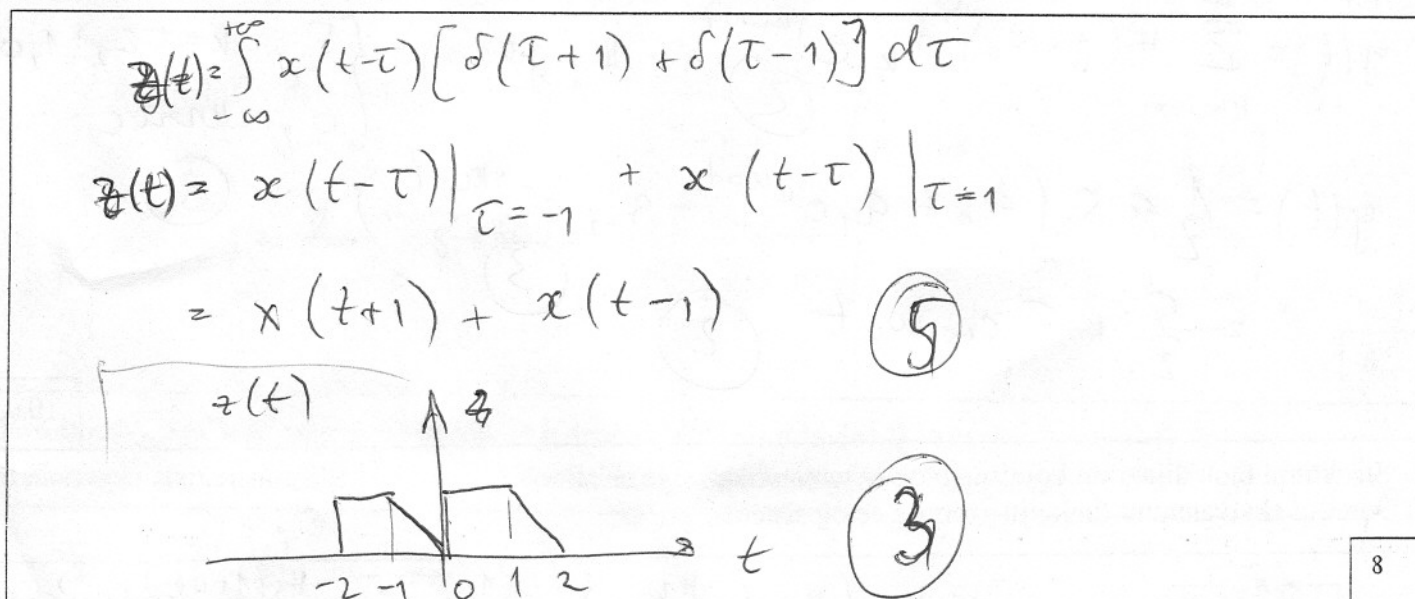 z(t) = ∫_{-∞}^{+∞} x(t-τ) [δ(τ+1) + δ(τ-1)] dτ
z(t) = x(t-τ)|_{τ=-1} + x(t-τ)|_{τ=1}
= x(t+1) + x(t-1)
5
z(t) z
3
t
-2 -1 0 1 2
8